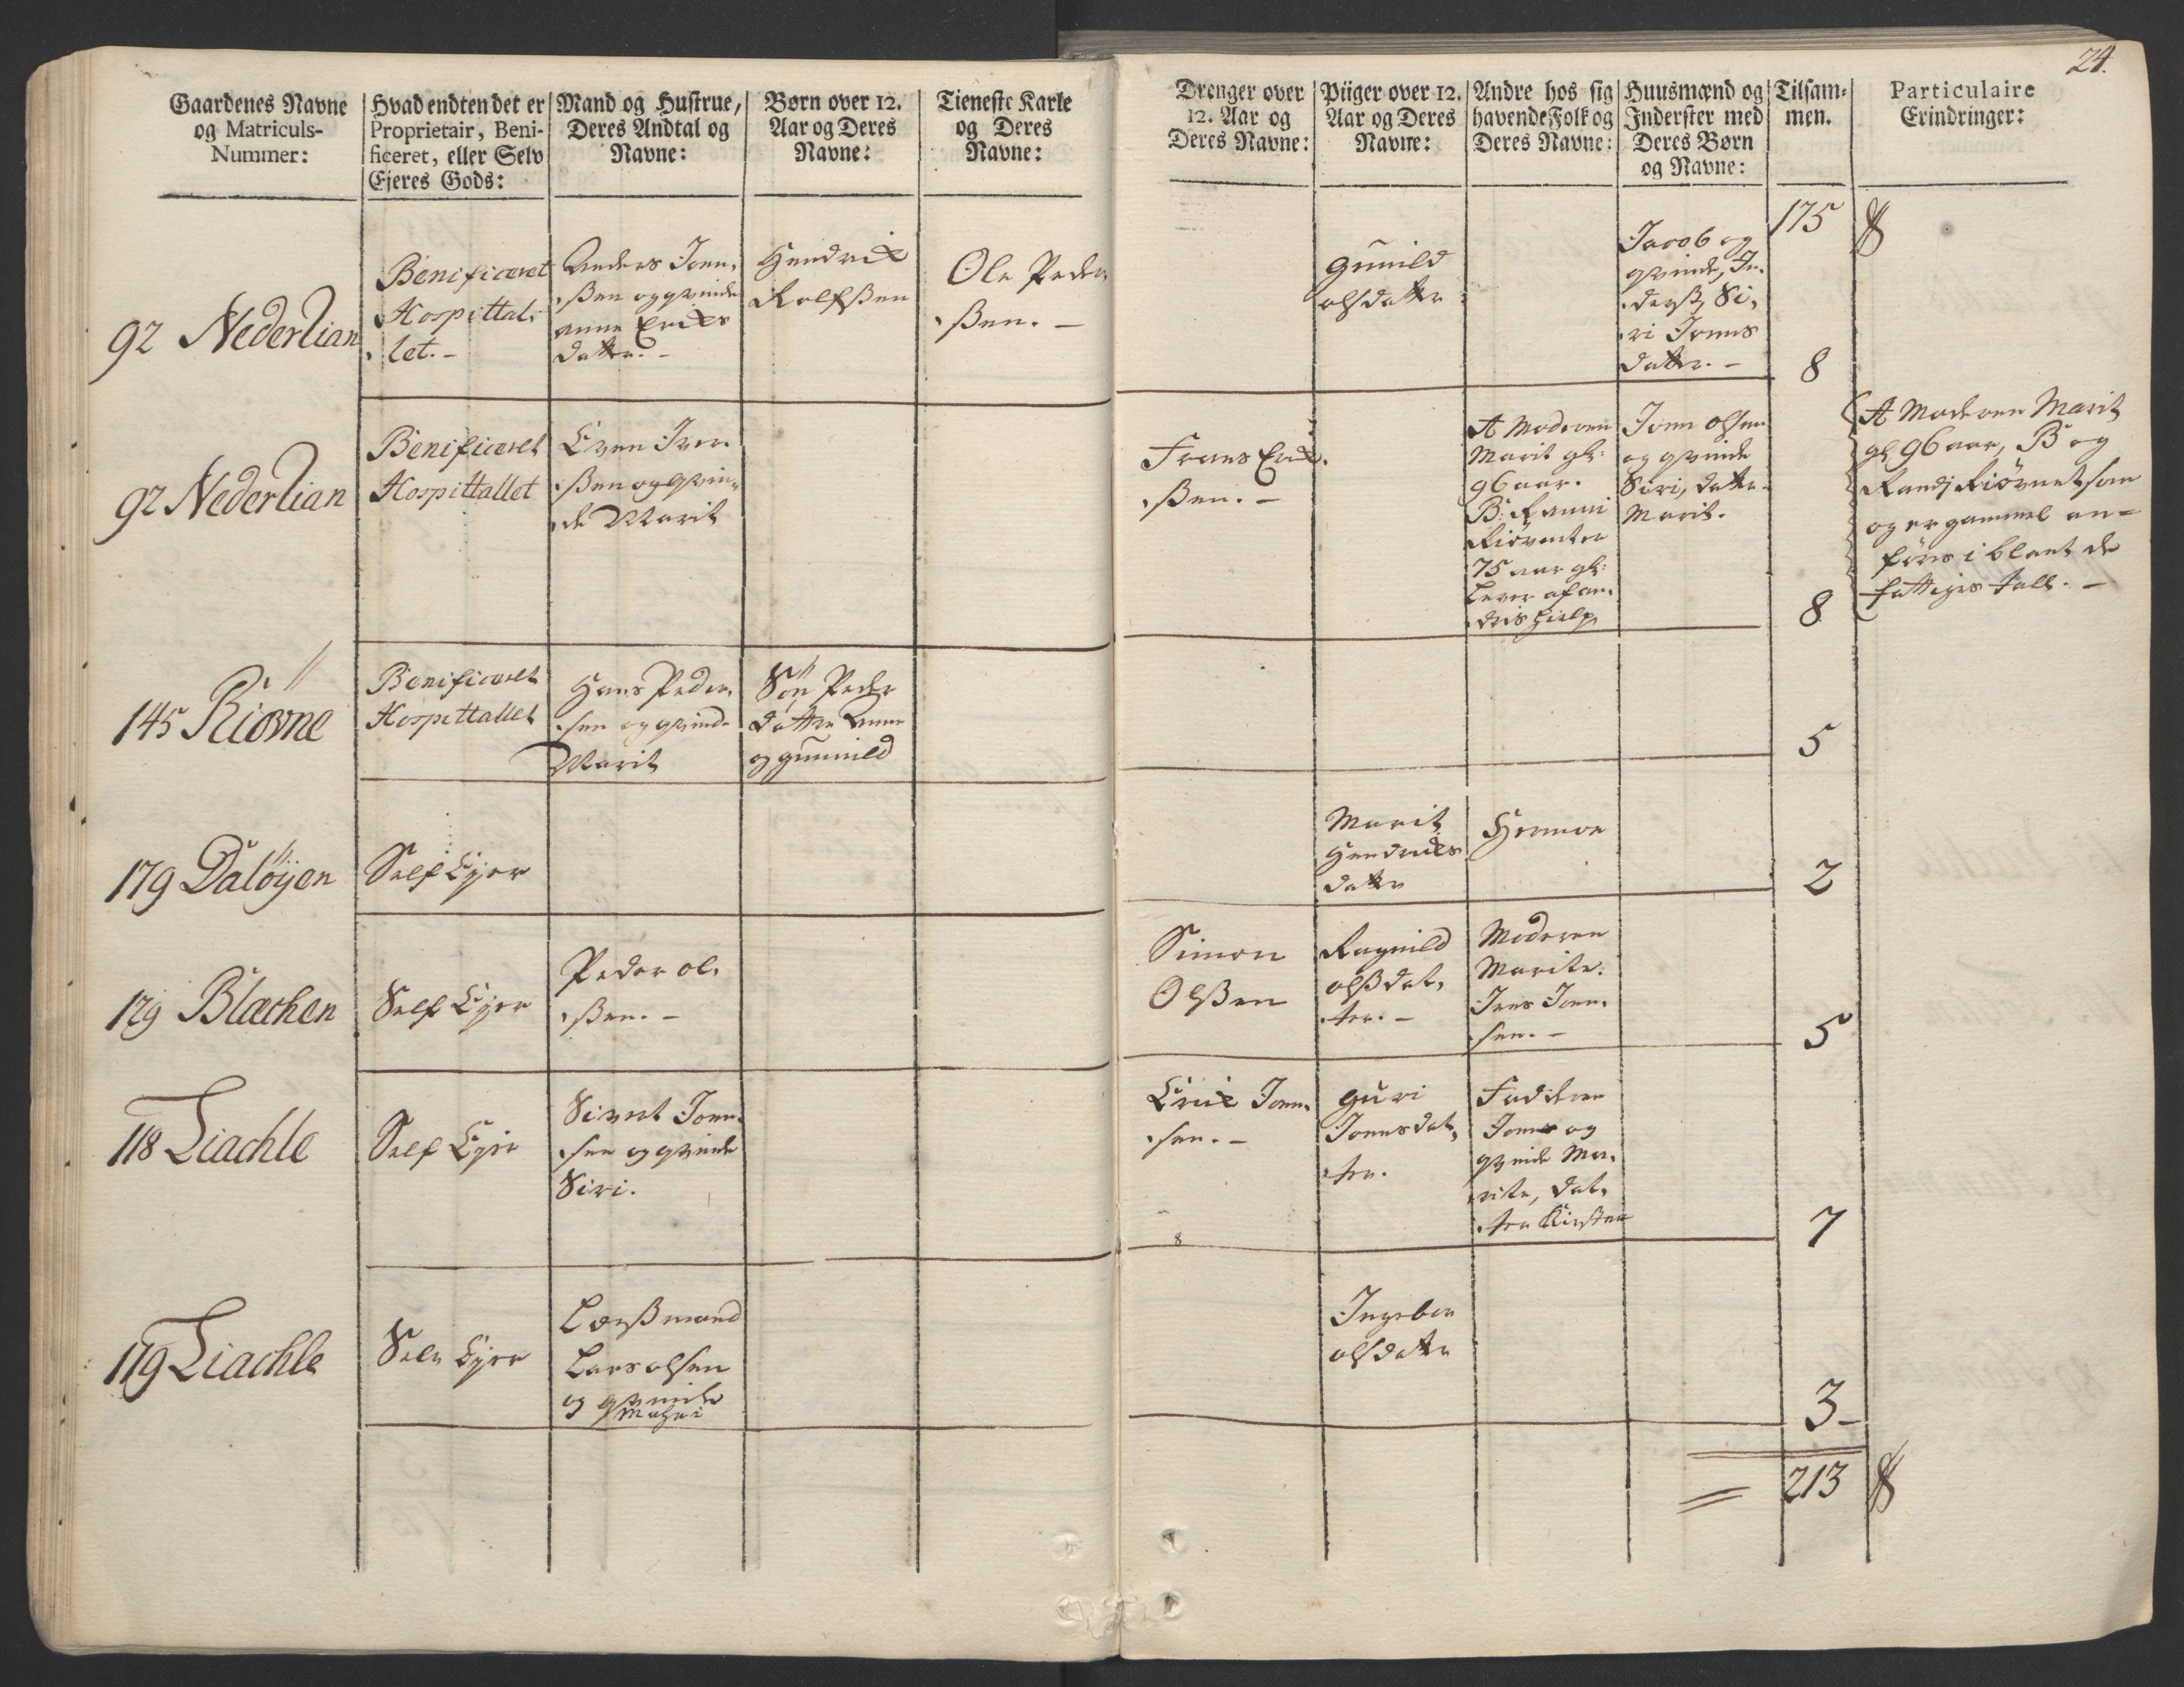 24.
Gaardenes Navne
og Matriculs-
Nummer:
Hvad endten det er
Proprietair, Beni-
ficeret, eller Selv
Ejeres Gods:
Mand og Hustrue,
Deres Andtal og
Navne:
Børn over 12.
Aar og Deres
Navne:
Tieneste Karle
og Deres
Navne:
Drenger over
12. Aar og
Deres Navne:
Piiger over 12.
Aar og Deres
Navne:
Andre hos sig
havende Folk og
Deres Navne:
Huusmænd og
Inderster med
Deres Børn
og Navne:
Tilsam-
men.
Particulaire
Erindringer:
175
92 Nederlian
Benificeret
Hospittal,
let.-
Anders Joen,
ßen og qvinde
anne Erichs
datter.-
Hendrich
Rolfßen
Ole Peder,
ßen.-
gunild
olsdatter
Jacob og
qvinde, In,
derst, Si,
ri Joens
datter.-
8
92 Nederlian
Benificeret
Hospittallet
Even Iver,
ßen og qvin,
de Marit
Frans Erich,
ßen.-
A Moderen
Marit gl:
96 aar.
B:
75 aar gl:
Lever af an,
dris hielp
Joen olsen
og qvinde
Siri, datter
Marit.
8
A Moderen Marit
gl 96 aar, B og
Randj Riövnet som
og er gammel an-
föres i blant de
fattiges tall.-
145 Riövne
Benificeret
Hospittallet
Hans Peder,
sen og qvinde
Marit
Sön Peder
datter Anne
og gunnild
5
179 Dalöyen
Self Eyer
Marit
Hendrichs
datter
2
179 Blæchen
Self Eyer
Peder ol,
ßen.-
Simon
Olßen
Ragnild
olßdat,
ter.-
Moderen
Marite.
Jens Joen,
sen.-
5
118 Liachle
Self Eyer
Sivert Joen,
sen og qvinde
Siri.
Erich Joen,
sen.-
guri
Joensdat,
ter.
Fadderen
Joen og
qvinde Ma,
rite, dat,
ter Kirsten
7
119 Liachle
Self Eyer
Lensmand
Lars olsen
og qvinde
Ingebor
olsdatter
3-
213